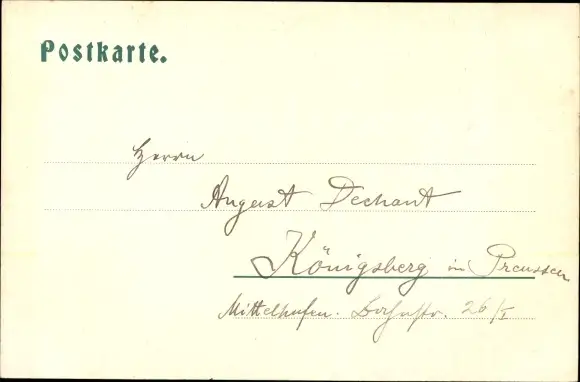 Postkarte.
Herrn
August Dechant
Königsberg in Preussen
Mittelhufen. 26/I